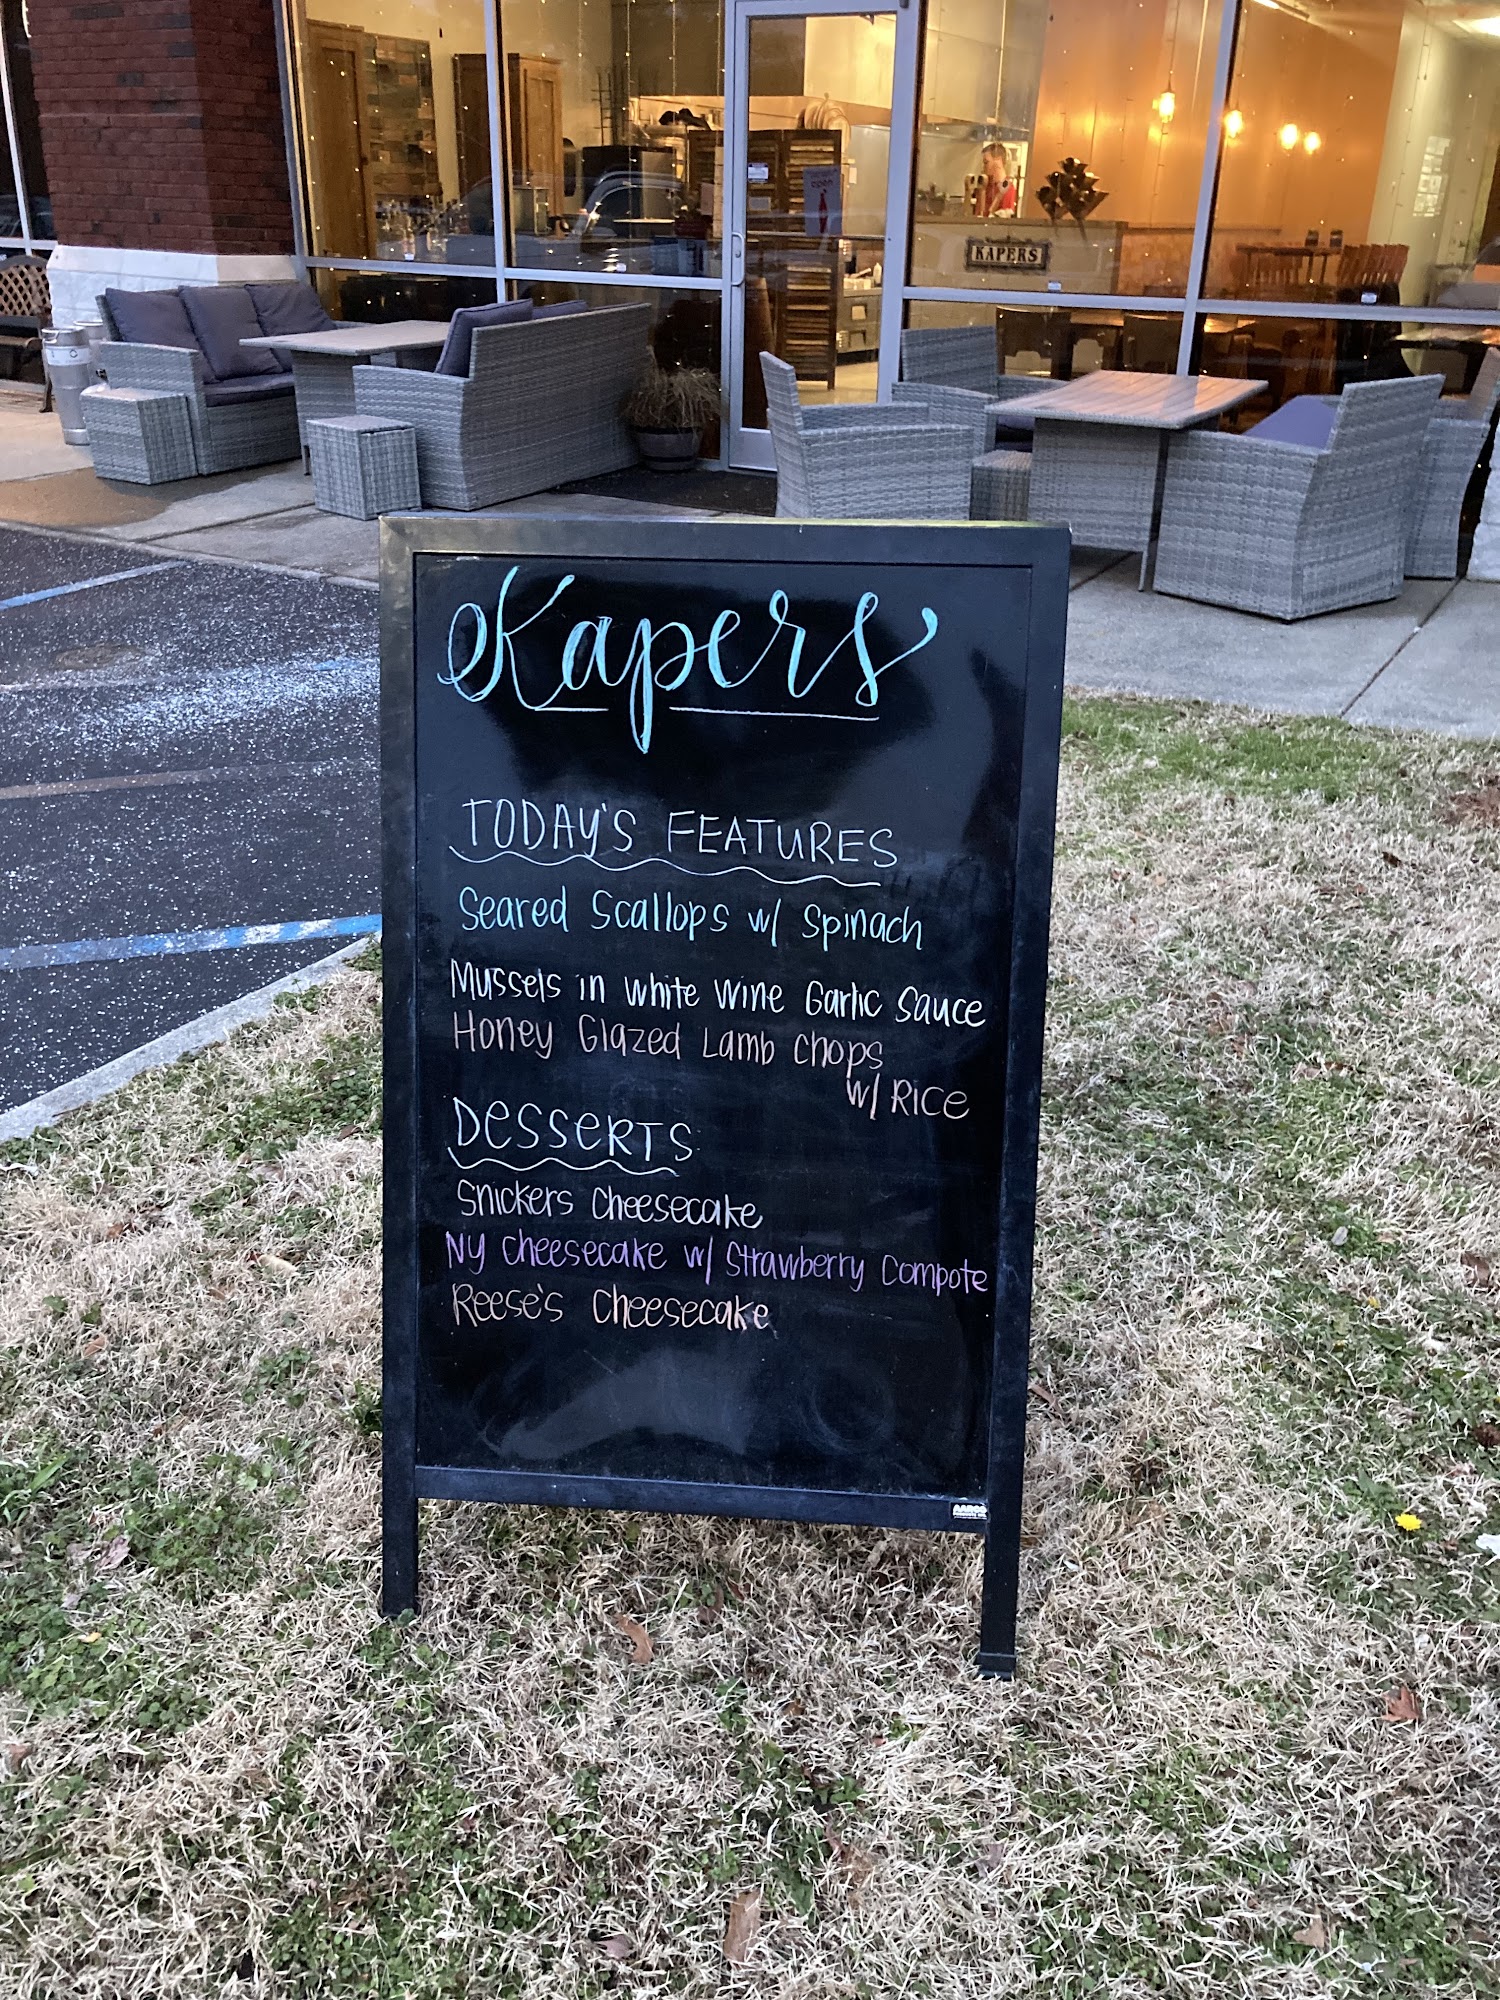 open
KAPERS
Kapers
TODAY'S FEATURES
Seared Scallops w/ Spinach
Mussels in White Wine Garlic Sauce
Honey Glazed Lamb Chops
w/ RICE
DESSERTS
Snickers Cheesecake
NY Cheesecake w/ Strawberry Compote
Reese's Cheesecake
AARCO
PRODUCTS INC.